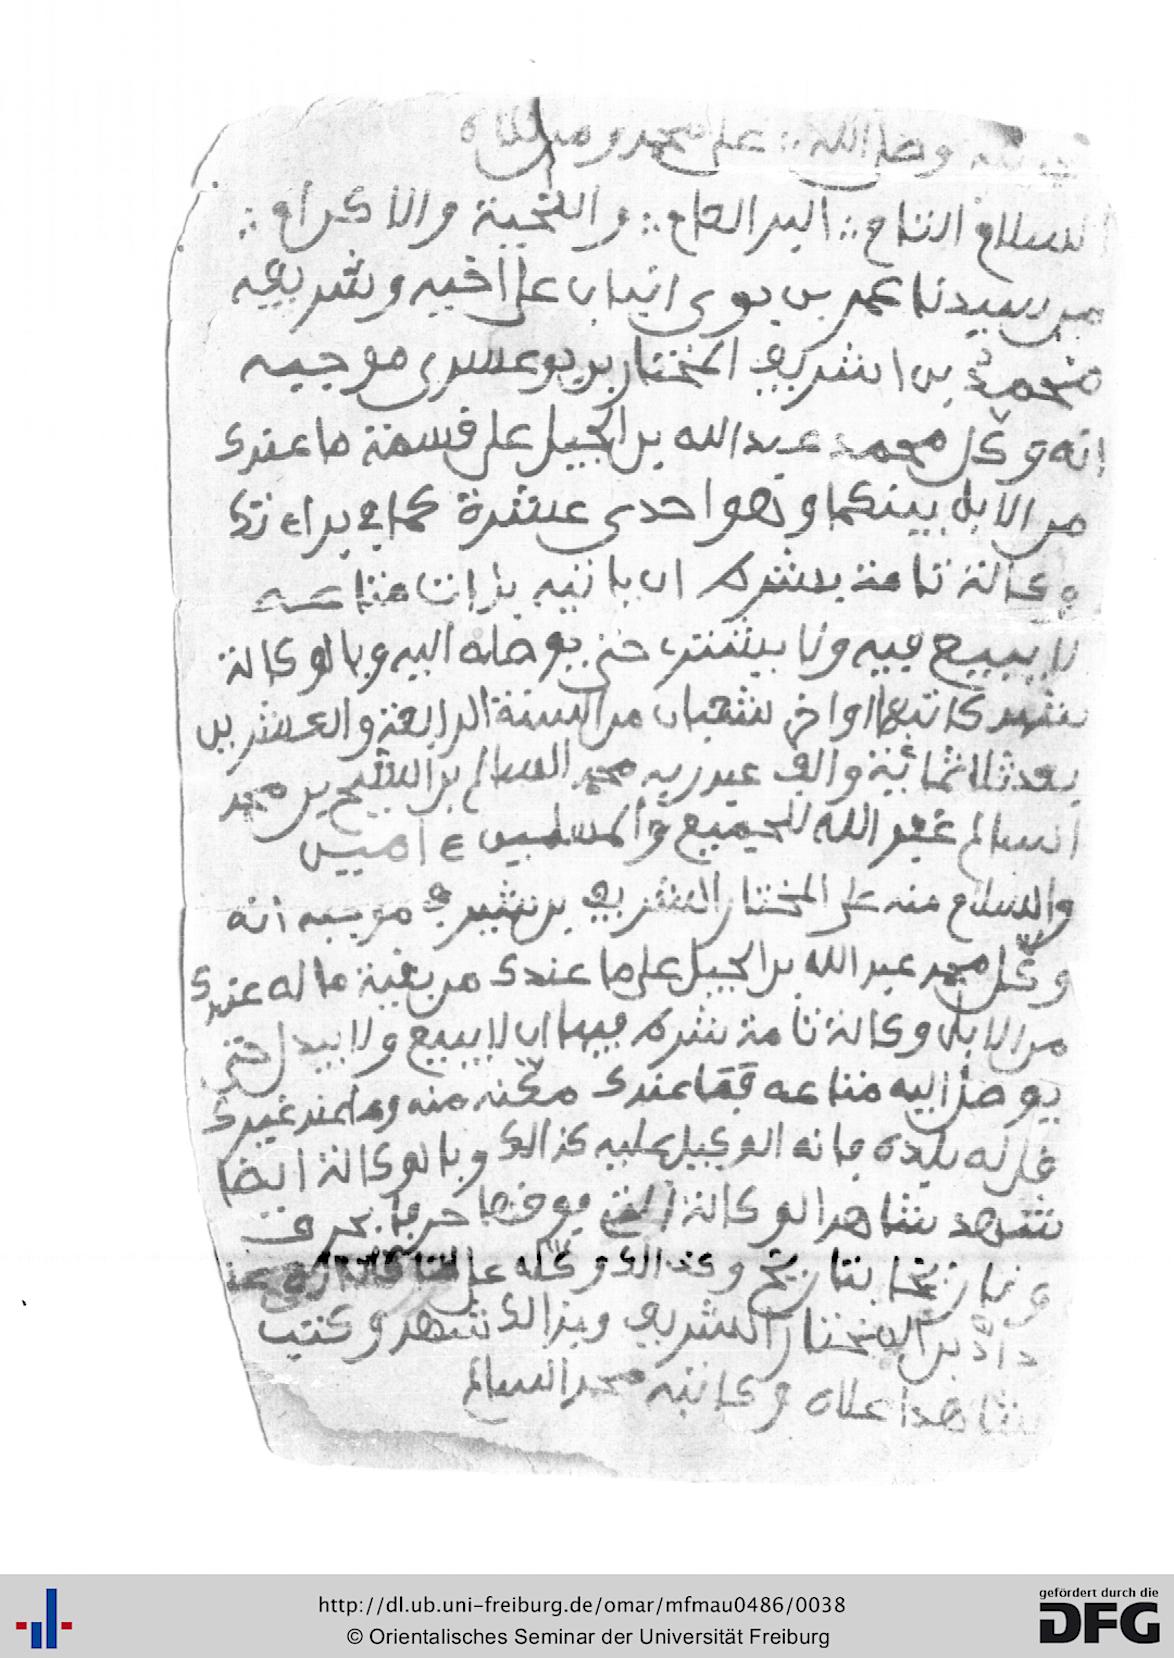 لله وصلى الله على محمد ومن والاه
السلام التام البدر العام والتحية والاكرام
من سيدنا عمر بن على اخيه وشريكه
بن الشريف المختار بن موجبه
انه وكل محمد عبد الله بن الجيل على قسمة ما عندك
من الابل بينكما وهو احدى عشرة كما في براءتك
وكالة تامة بشرط ان ياتيه متاعه
لا يبيع فيه ولا يشتري حتى يوصله اليه وبالوكالة
شهد كاتبها اواخر شعبان من السنة الرابعة والعشرين
بعد ثلاثمائة والف عبد ربه محمد السالم بن الشيخ بن محمد
السالم غفر الله للجميع والمسلمين ءامين
والسلام منه على المختار الشريف بن موجبه انه
وكل محمد عبد الله بن الجيل على ما عندك من بقية ما له عندك
من الابل وكالة تامة شرط فيها ان لا يبيع ولا يبدل حتى
يوصل اليه متاعه فما عندك مكنه منه وما عند غيرك
فانه الوكيل عليه كذالك وبالوكالة ايضا
شهد شاهد الوكالة التي فوقها حرفا بحرف
وتاريخا بتاريخ وكذالك وكله على
بن المختار الشريف وبذالك شهد وكتب
شاهدا علاه وكاتبه محمد السالم
http://dl.ub.uni-freiburg.de/omar/mfmau0486/0038
© Orientalisches Seminar der Universität Freiburg
gefördert durch die
DFG